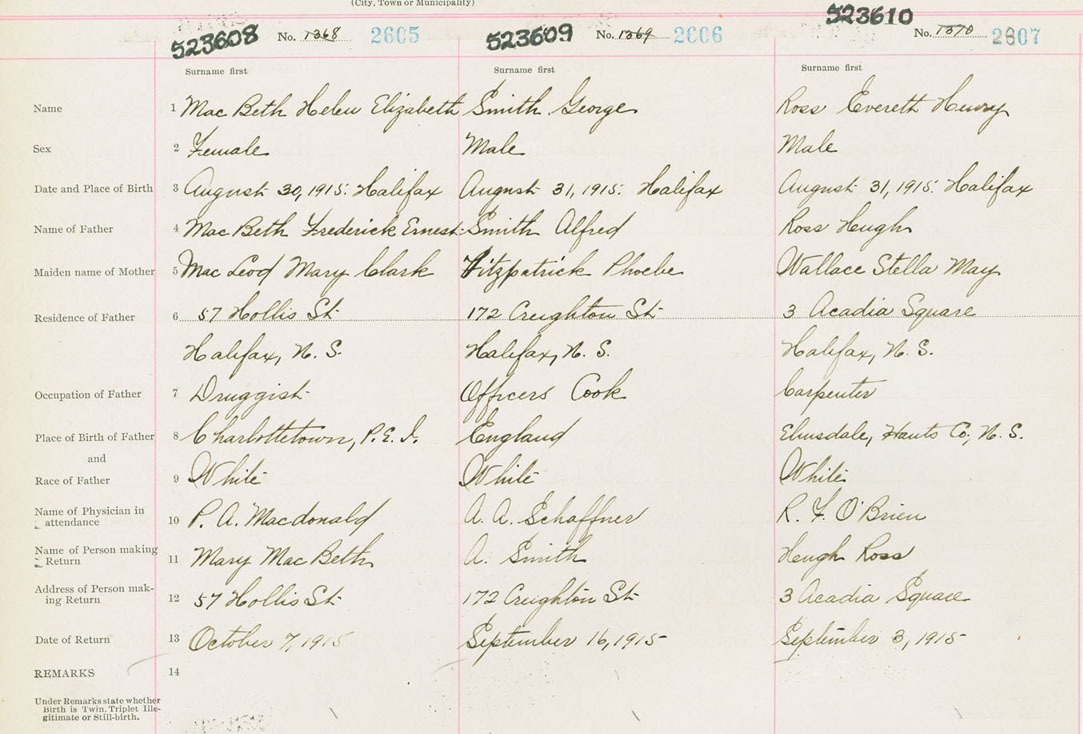 (City, Town or Municipality)
523608 No. 1368 2605 523609 No. 1369 2606 523610 No. 1370 2607
Surname first Surname first Surname first
Name 1 Mac Beth Helen Elizabeth Smith George Ross Evereth Henry
Sex 2 Female Male Male
Date and Place of Birth 3 August 30, 1915: Halifax August 31, 1915: Halifax August 31, 1915: Halifax
Name of Father 4 Mac Beth Frederick Ernest Smith Alfred Ross Hugh
Maiden name of Mother 5 Mac Leod Mary Clark Fitzpatrick Phoebe Wallace Stella May
Residence of Father 6 57 Hollis St. 172 Creighton St. 3 Acadia Square
Halifax, N. S. Halifax, N. S. Halifax, N. S.
Occupation of Father 7 Druggist Officers Cook Carpenter
Place of Birth of Father 8 Charlottetown, P.E.I. England Elmsdale, Hants Co, N. S.
and
Race of Father 9 White White White
Name of Physician in
attendance 10 P. A. Macdonald A. A. Schaffner R. F. O'Brien
Name of Person making
Return 11 Mary Mac Beth A. Smith Hugh Ross
Address of Person mak-
ing Return 12 57 Hollis St. 172 Creighton St. 3 Acadia Square
Date of Return 13 October 7, 1915 September 16, 1915 September 3, 1915
REMARKS 14
Under Remarks state whether
Birth is Twin, Triplet Ille-
gitimate or Still-birth.